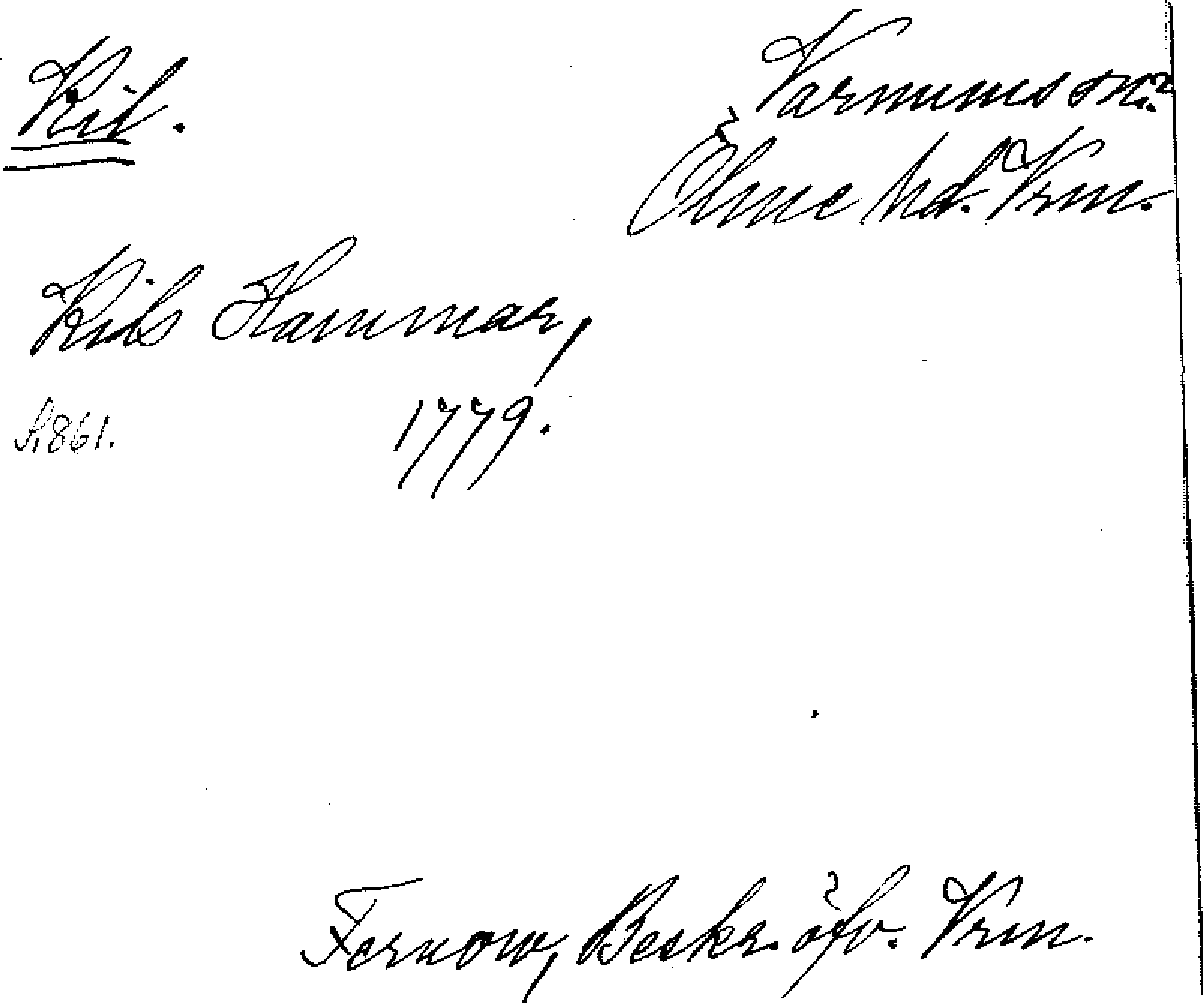 Kil.
Varnums sn.
Ölme hd. Vrm.
Kils Hammar,
1779.
A861.
Fernow, Beskr. öfv. Vrm.